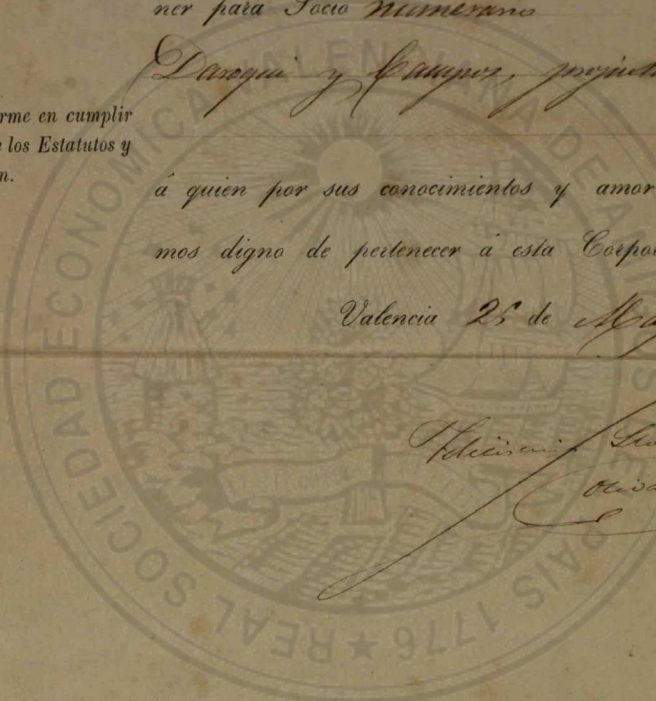 ner para Socio numerario
Daroqui y Campos,
rme en cumplir
los Estatutos y
n.
á quien por sus conocimientos y amor
mos digno de pertenecer á esta Corpo
Valencia 25 de Ma
REAL SOCIEDAD ECONOMICA VALENCIANA DE AMIGOS DEL PAIS 1776